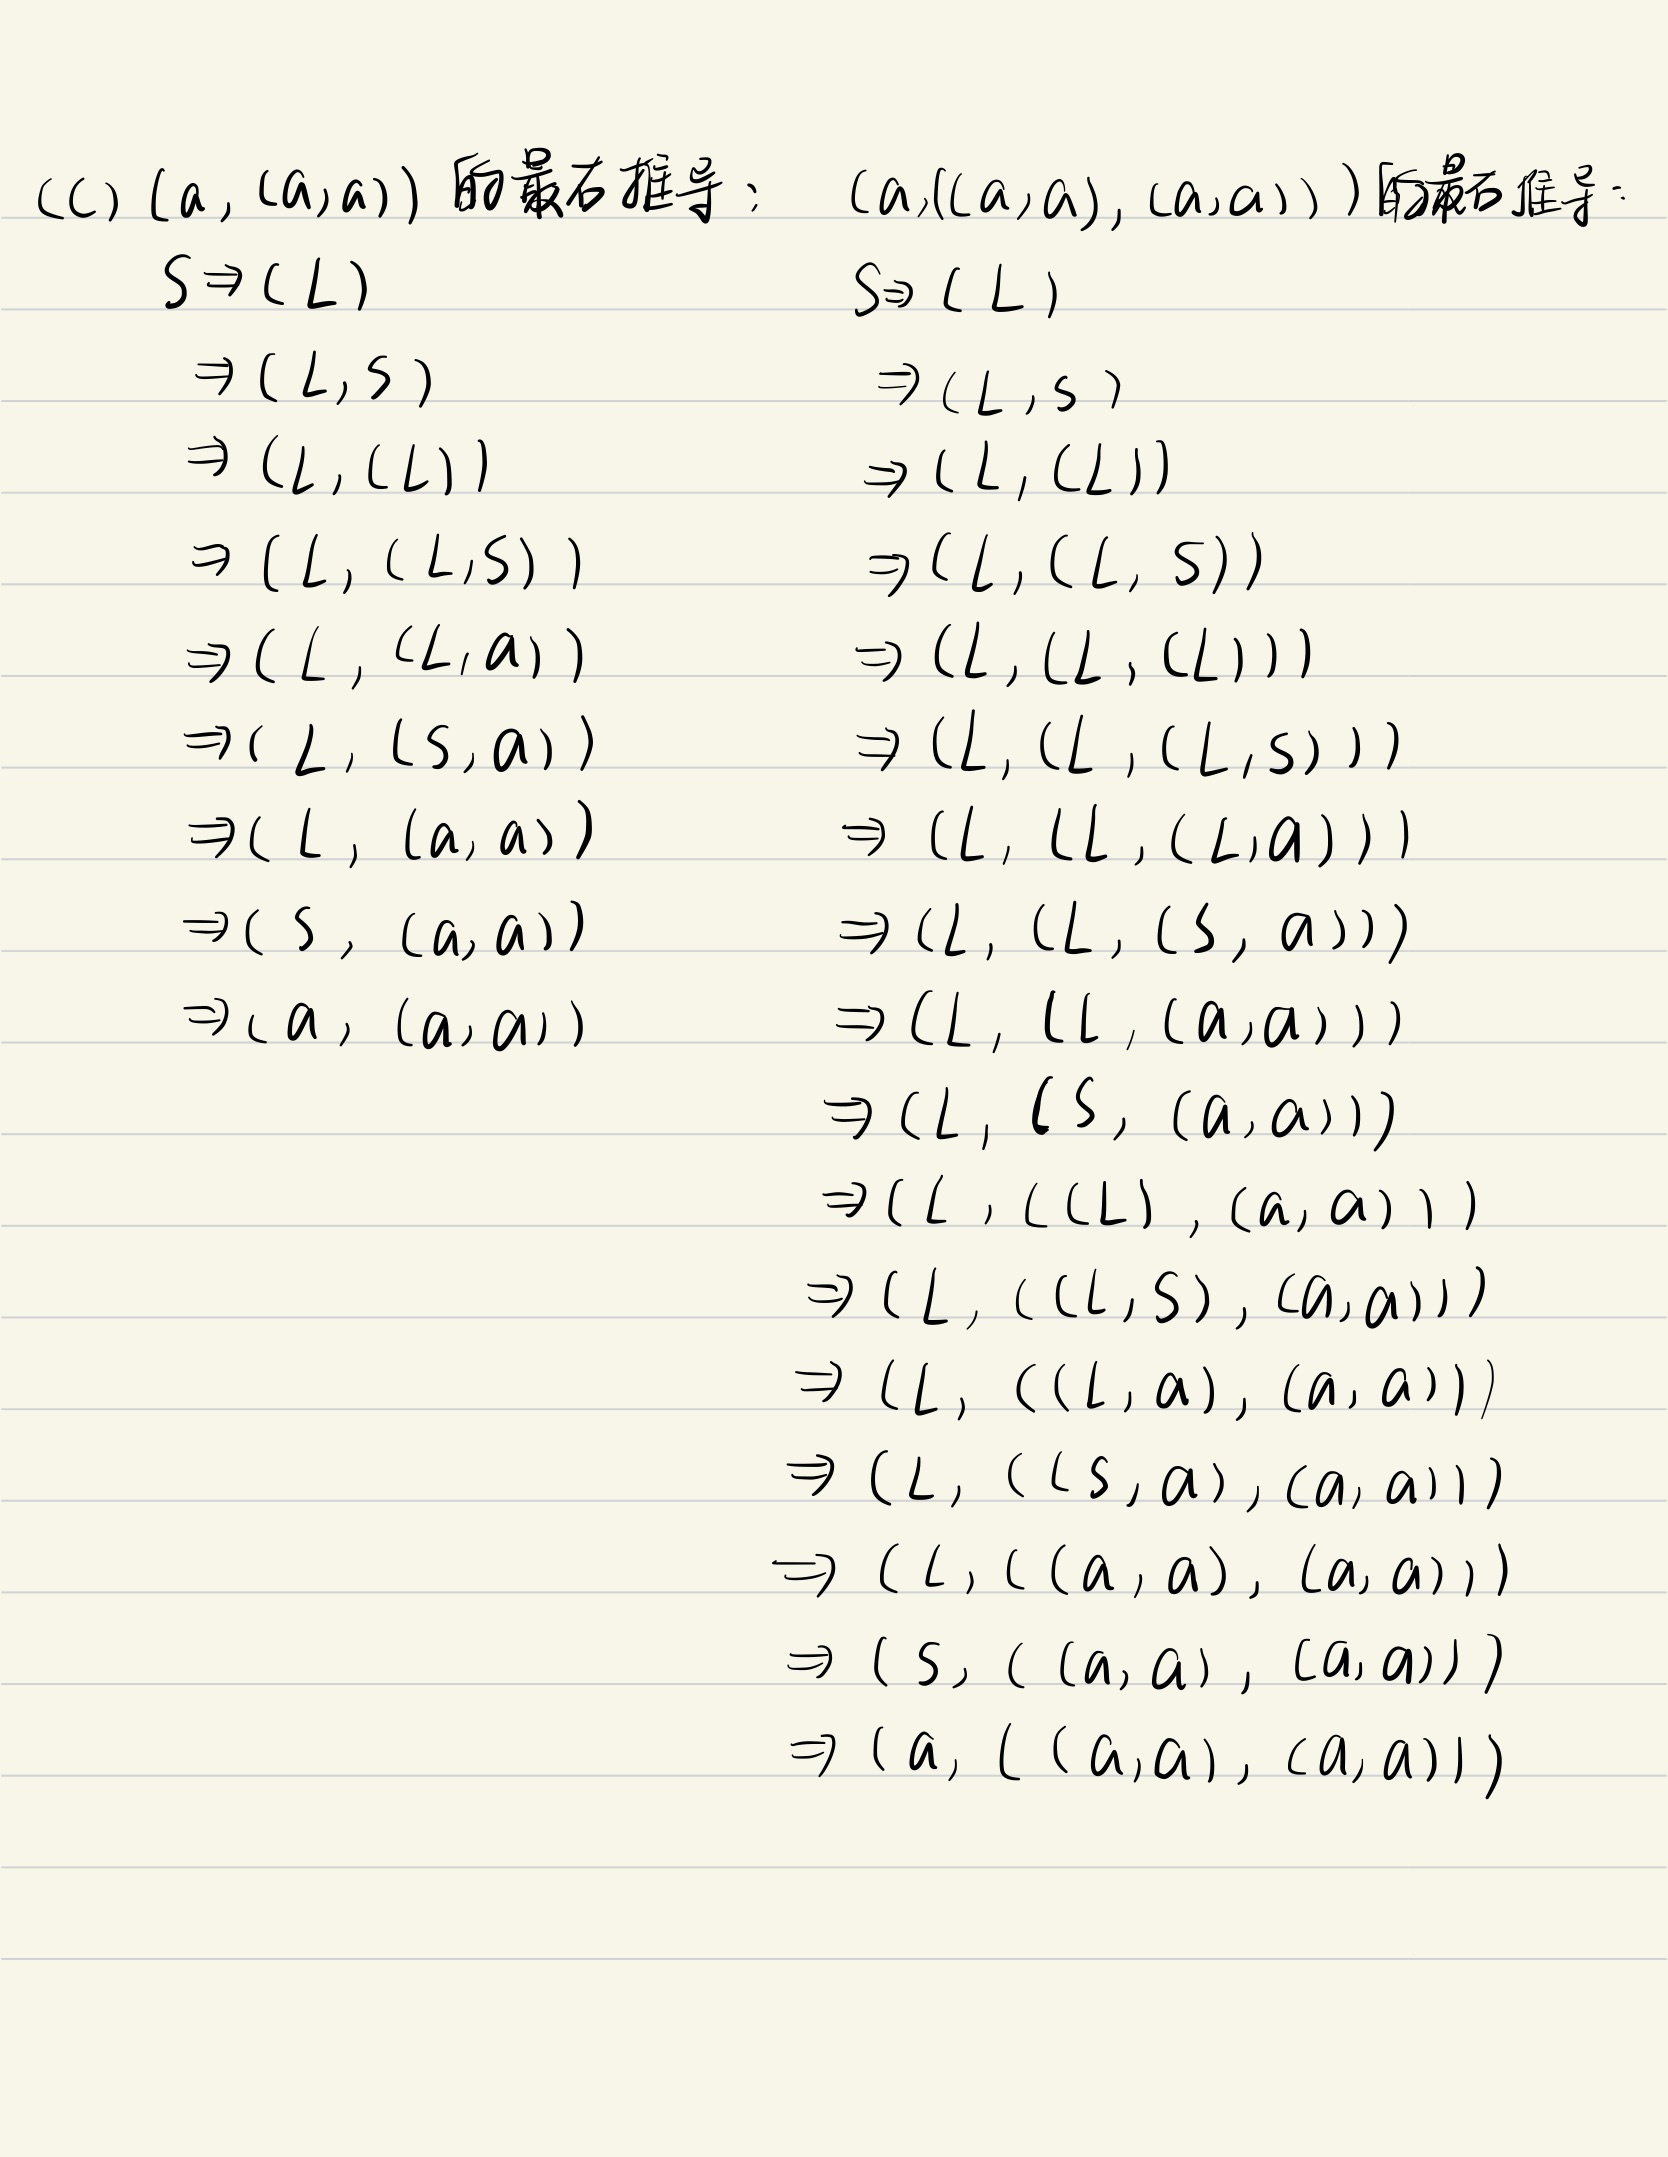 (c) (a, (a,a)) 的最右推导:
S⇒(L)
⇒(L,S)
⇒(L,(L))
⇒(L,(L,S))
⇒(L,(L,a))
⇒(L,(S,a))
⇒(L,(a,a))
⇒(S,(a,a))
⇒(a,(a,a))
(a,((a,a),(a,a)))的最右推导:
S⇒(L)
⇒(L,S)
⇒(L,(L))
⇒(L,(L,S))
⇒(L,(L,(L)))
⇒(L,(L,(L,S)))
⇒(L,(L,(L,a)))
⇒(L,(L,(S,a)))
⇒(L,(L,(a,a)))
⇒(L,(S,(a,a)))
⇒(L,((L),(a,a)))
⇒(L,((L,S),(a,a)))
⇒(L,((L,a),(a,a)))
⇒(L,((S,a),(a,a)))
⇒(L,((a,a),(a,a)))
⇒(S,((a,a),(a,a)))
⇒(a,((a,a),(a,a)))